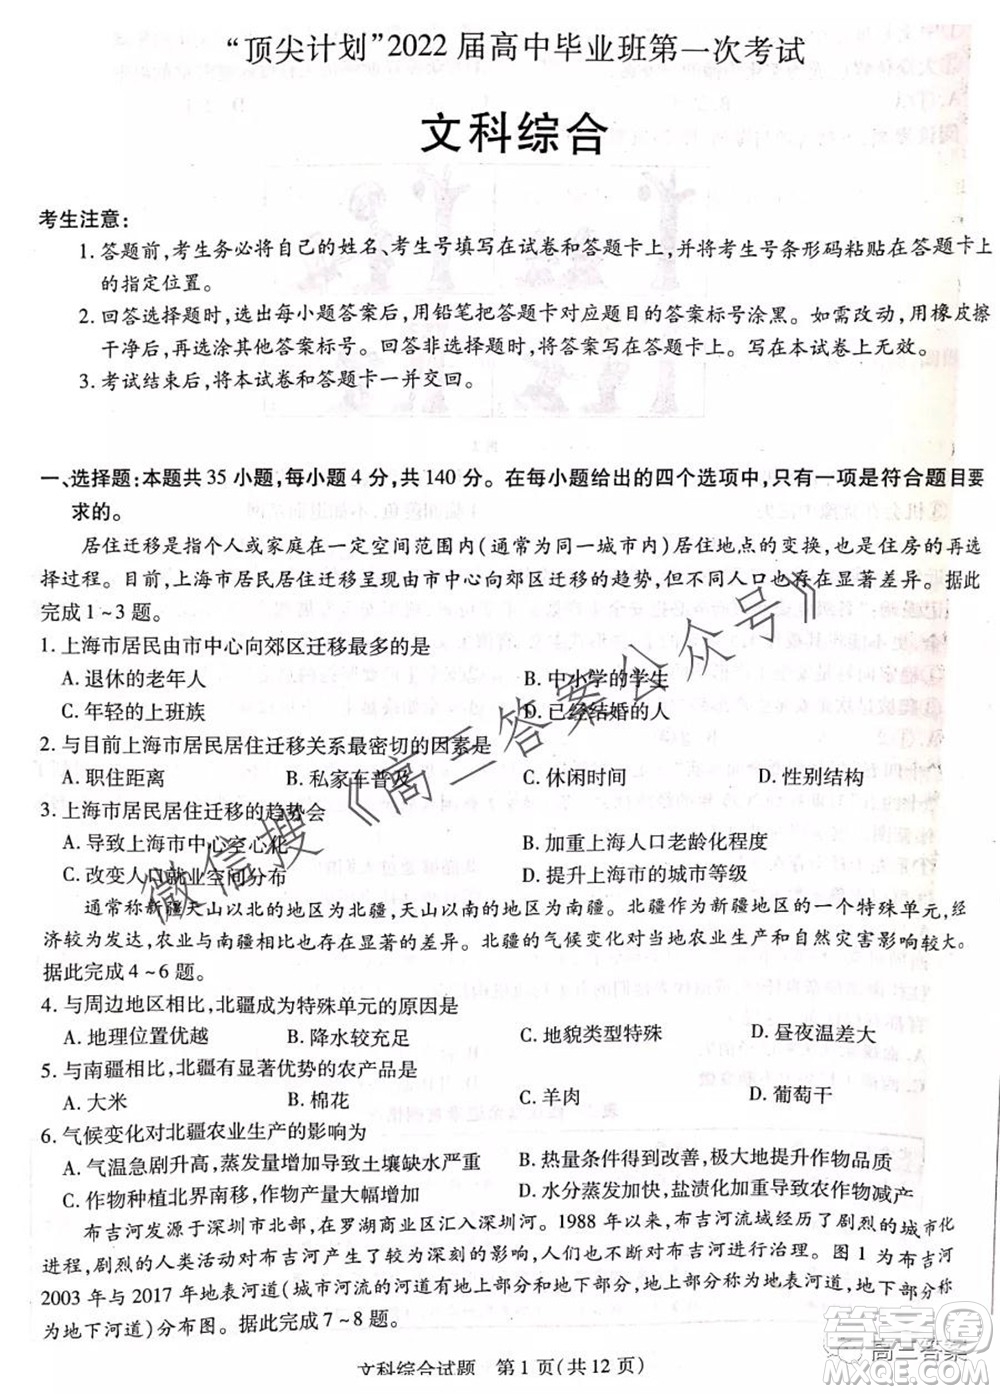 “顶尖计划”2022届高中毕业班第一次考试
文科综合
考生注意：
1.答题前，考生务必将自己的姓名、考生号填写在试卷和答题卡上，并将考生号条形码粘贴在答题卡上
的指定位置。
2.回答选择题时，选出每小题答案后，用铅笔把答题卡对应题目的答案标号涂黑。如需改动，用橡皮擦
干净后，再选涂其他答案标号。回答非选择题时，将答案写在答题卡上。写在本试卷上无效。
3.考试结束后，将本试卷和答题卡一并交回。
一、选择题：本题共35小题，每小题4分，共140分。在每小题给出的四个选项中，只有一项是符合题目要
求的。
居住迁移是指个人或家庭在一定空间范围内（通常为同一城市内）居住地点的变换，也是住房的再选
择过程。目前，上海市居民居住迁移呈现由市中心向郊区迁移的趋势，但不同人口也存在显著差异。据此
完成1~3题。
1.上海市居民由市中心向郊区迁移最多的是
A.退休的老年人 B.中小学的学生
C.年轻的上班族 D.已经结婚的人
2.与目前上海市居民居住迁移关系最密切的因素是
A.职住距离 B.私家车普及 C.休闲时间 D.性别结构
3.上海市居民居住迁移的趋势会
A.导致上海市中心空心化 B.加重上海人口老龄化程度
C.改变人口就业空间分布 D.提升上海市的城市等级
通常称新疆天山以北的地区为北疆，天山以南的地区为南疆。北疆作为新疆地区的一个特殊单元，经
济较为发达，农业与南疆相比也存在显著的差异。北疆的气候变化对当地农业生产和自然灾害影响较大。
据此完成4~6题。
4.与周边地区相比，北疆成为特殊单元的原因是
A.地理位置优越 B.降水较充足 C.地貌类型特殊 D.昼夜温差大
5.与南疆相比，北疆有显著优势的农产品是
A.大米 B.棉花 C.羊肉 D.葡萄干
6.气候变化对北疆农业生产的影响为
A.气温急剧升高，蒸发量增加导致土壤缺水严重 B.热量条件得到改善，极大地提升作物品质
C.作物种植北界南移，作物产量大幅增加 D.水分蒸发加快，盐渍化加重导致农作物减产
布吉河发源于深圳市北部，在罗湖商业区汇入深圳河。1988年以来，布吉河流域经历了剧烈的城市化
进程，剧烈的人类活动对布吉河产生了较为深刻的影响，人们也不断对布吉河进行治理。图1为布吉河
2003年与2017年地表河道（城市河流的河道有地上部分和地下部分，地上部分称为地表河道，地下部分称
为地下河道）分布图。据此完成7~8题。
文科综合试题 第1页（共12页）
微信搜《高三答案公众号》
答案圈
高三答案